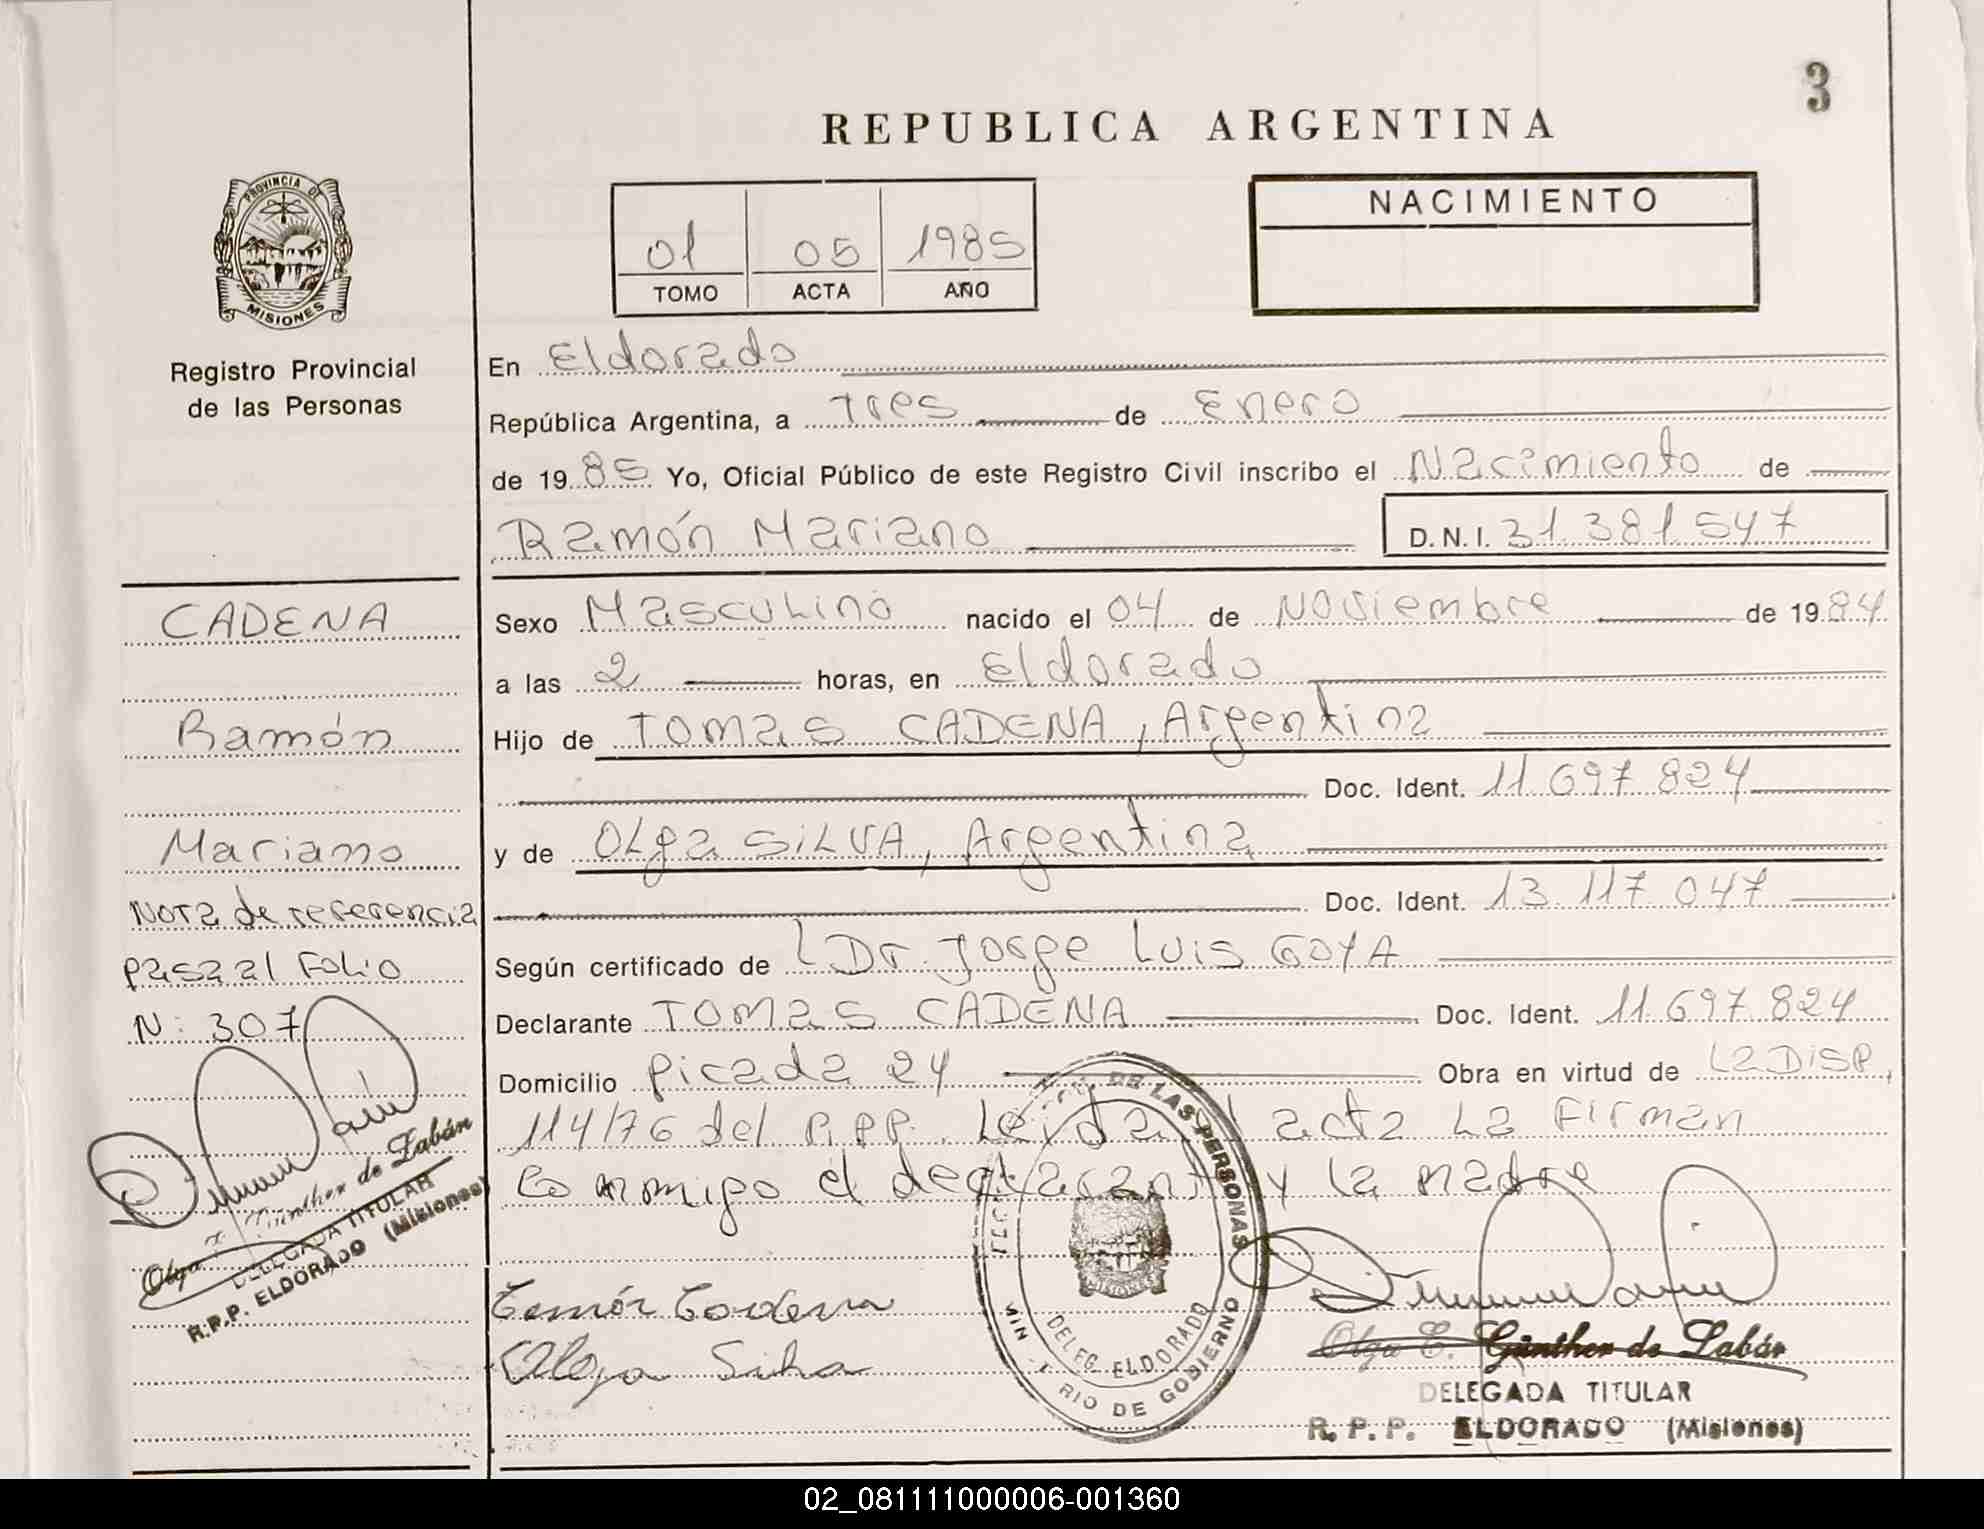 3
REPUBLICA ARGENTINA
PROVINCIA DE
MISIONES
Registro Provincial
de las Personas
01 05 1985
TOMO ACTA AÑO
NACIMIENTO
En Eldorado
República Argentina, a Tres de Enero
de 1985 Yo, Oficial Público de este Registro Civil inscribo el Nacimiento de
Ramón Mariano D.N.I. 31.381.547
Sexo Masculino nacido el 04 de Noviembre de 1984
a las 2 horas, en Eldorado
Hijo de Tomas CADENA, Argentina
Doc. Ident. 11.697.824
y de Olga SILVA, Argentina
Doc. Ident. 13.117.047
Según certificado de Dr. Jorge Luis GOYA
Declarante Tomas CADENA Doc. Ident. 11.697.824
Domicilio Picada 24 Obra en virtud de La Disp.
114/76 del R.P.P. Leida el acta La Firman
Conmigo el declarante y la madre
CADENA
Ramón
Mariano
Nota de referencia
pasa al Folio
N: 307
Olga E. Günther de Labán
DELEGADA TITULAR
R.P.P. ELDORADO (Misiones)
Olga Silva
DE LAS PERSONAS
DELEG. ELDORADO
MIN RIO DE GOBIERNO
Olga E. Günther de Labán
DELEGADA TITULAR
R. P. P. ELDORADO (Misiones)
02_081111000006-001360